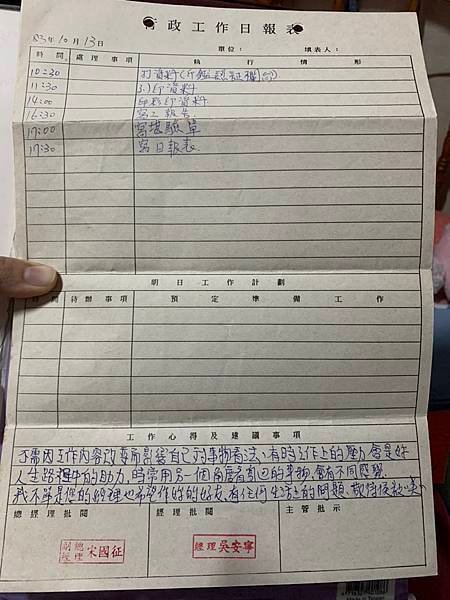 行政工作日報表
83年10月13日 單位： 填表人：
時間 處理事項 執行情形
10:30 打資料(
11:30 列印資料
14:00 印資料
16:30 寫工報告
17:00 寫 驗單
17:30 寫日報表.
明日工作計劃
時間 待辦事項 預定準備工作
工作心得及建議事項
不需因工作內容改變而影響自己的事物看法,有時工作上的壓力會是妳
人生路程中的助力,時常用另一個角度看自己的事物,會有不同感覺
我不單是你的經理也希望作妳的好友,有任何生活上的問題,歡
總經理批閱 經理批閱 主管批示
副總經理 宋國征
經理 吳安寧